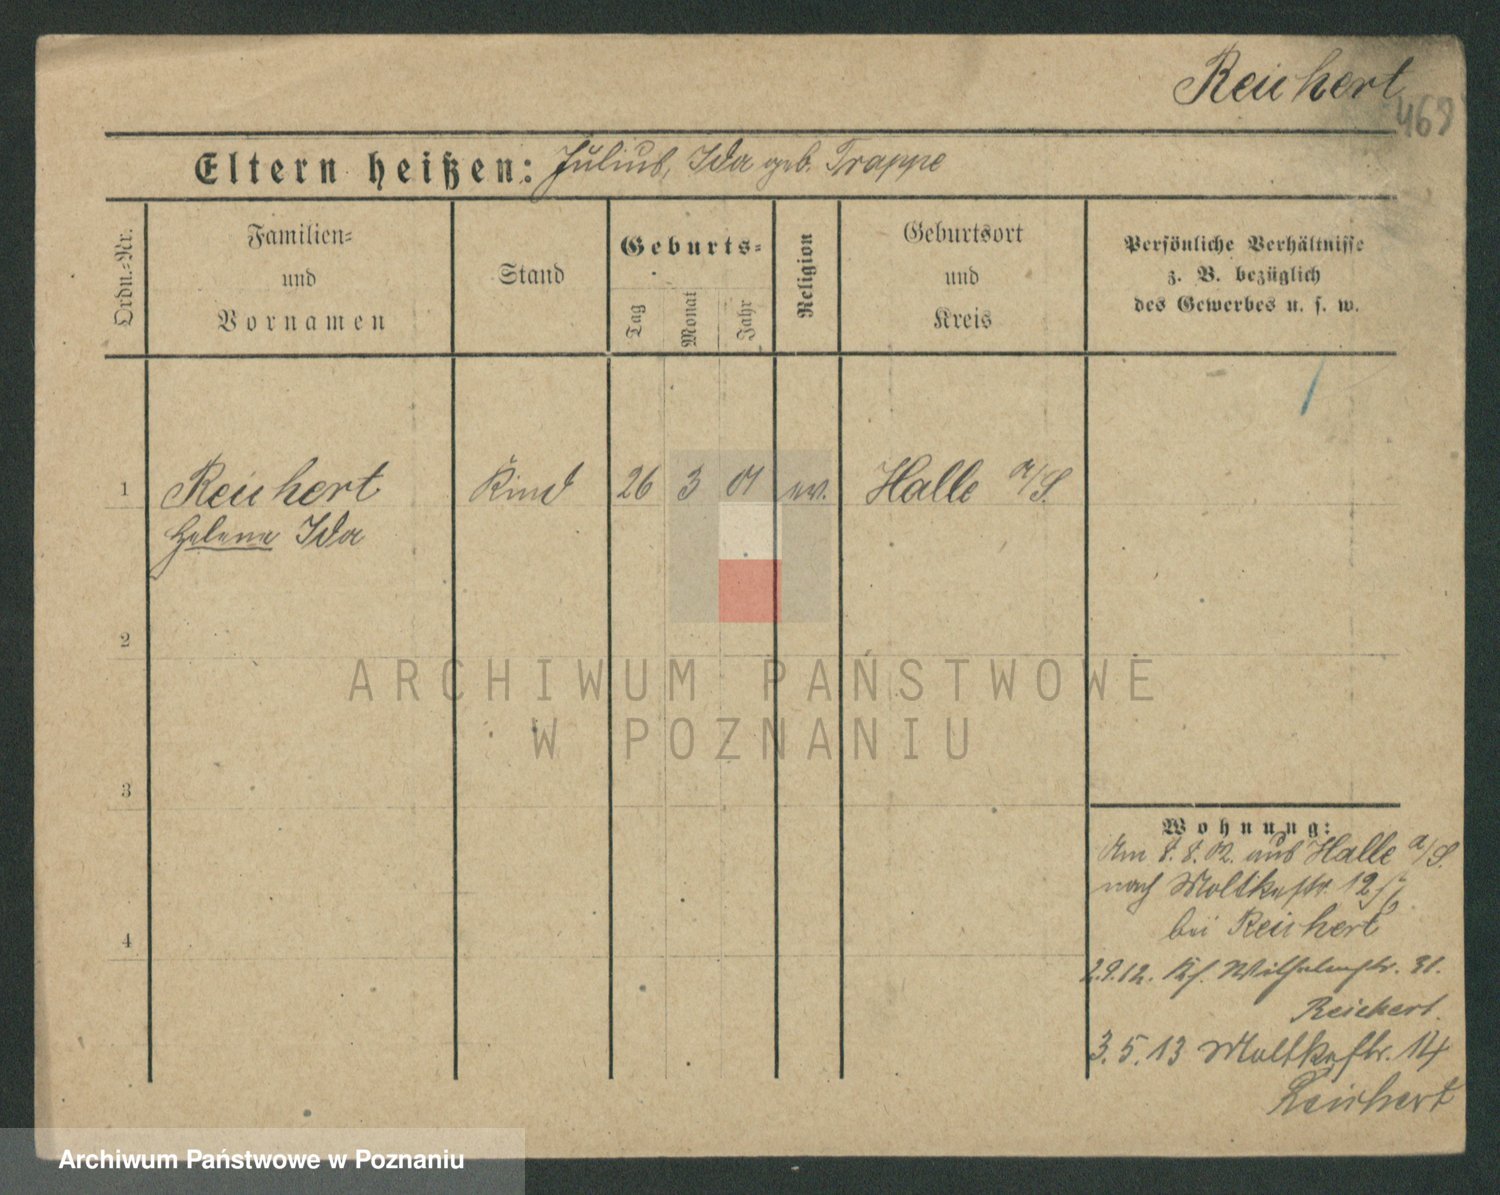 Reichert
469
Eltern heißen: Julius, Ida geb. Trappe
Ordn.-Nr.
Familien-
und
Vornamen
Stand
Geburts-
Tag
Monat
Jahr
Religion
Geburtsort
und
Kreis
Persönliche Verhältnisse
z. B. bezüglich
des Gewerbes u. s. w.
1 Reichert Kind 26 3 01 ev. Halle a/S.
Helene Ida
2
ARCHIWUM PAŃSTWOWE
W POZNANIU
3
Wohnung:
Am 8.8.02. aus Halle a/S.
nach Moltkestr. 12
4
bei Reichert
2.9.12. Wilhelmstr. 31.
Reichert.
3.5.13 Moltkestr. 14
Reichert
Archiwum Państwowe w Poznaniu